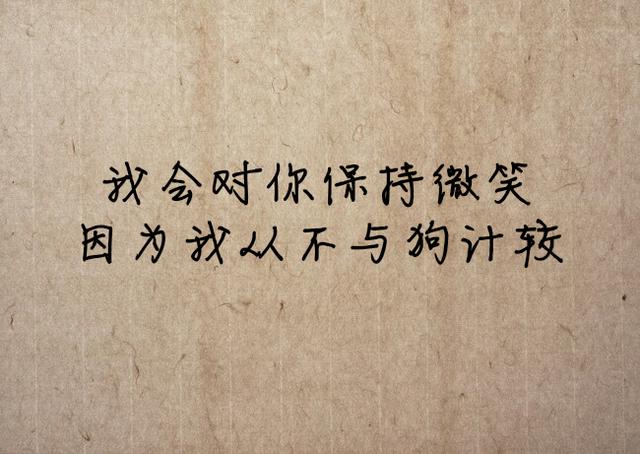 我会对你保持微笑
因为我从不与狗计较